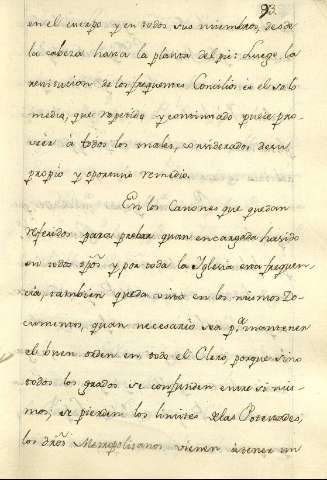 93.
en el cuerpo y en todos sus miembros, desde
la cabeza hasta la planta del pie: Luego la
restitucion de los frequentes Concilios es el solo
medio, que repetido y continuado puede pro-
veer à todos los males, considerados de su
propio y oportuno remedio.
En los Canones que quedan
referidos para probar quan encargada ha sido
en todos tpõs y por toda la Iglesia esta frequen-
cia, tambien queda visto en los mismos Do-
cumentos, quan necesario sea pª mantener
el buen orden en todo el Clero, porque sino
todos los grados se confunden entre si mis-
mos; se pierden los limites de las Potestades,
los dr̃os Metropolitanos vienen à tener un